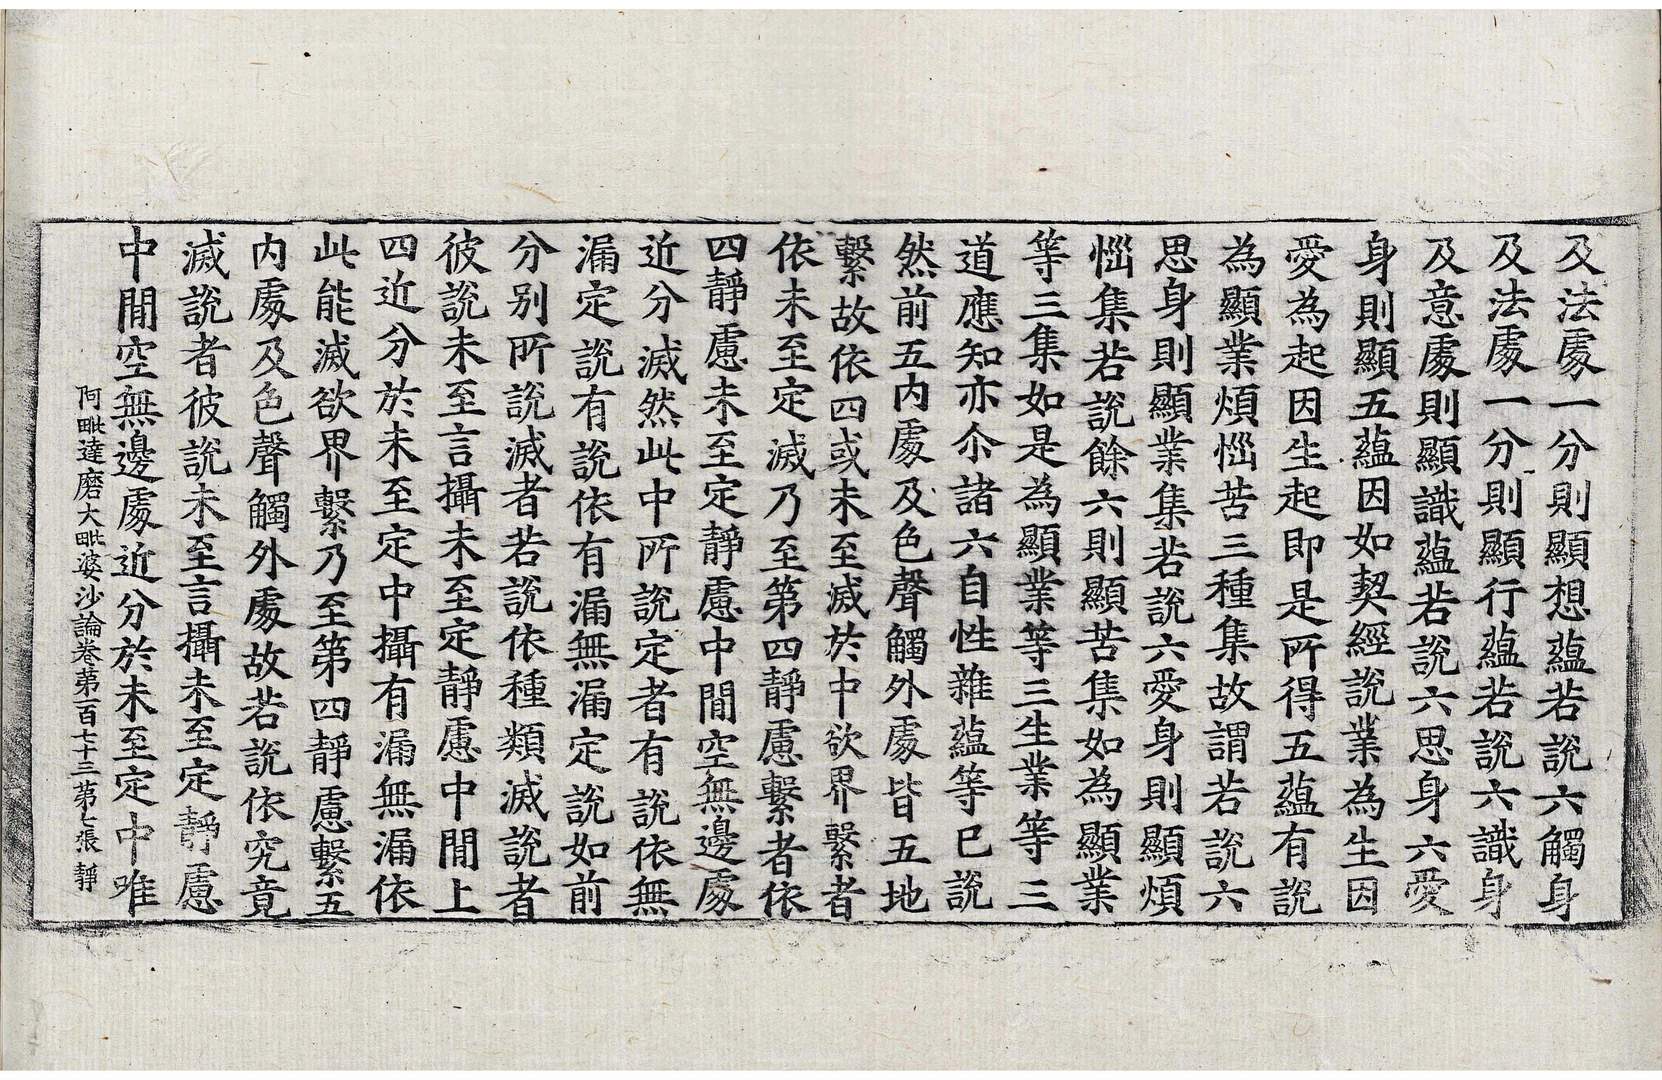 及法處一分則顯想蘊若說六觸身
及法處一分則顯行蘊若說六識身
及意處則顯識蘊若說六思身六愛
身則顯五蘊因如契經說業為生因
愛為起因生起即是所得五蘊有說
為顯業煩惱苦三種集故謂若說六
思身則顯業集若說六愛身則顯煩
惱集若說餘六則顯苦集如為顯業
等三集如是為顯業等三生業等三
道應知亦尒諸六自性雜蘊等已說
然前五內處及色聲觸外處皆五地
繫故依四或未至滅於中欲界繫者
依未至定滅乃至第四靜慮繫者依
四靜慮未至定靜慮中間空無邊處
近分滅然此中所說定者有說依無
漏定說有說依有漏無漏定說如前
分別所說滅者若說依種類滅說者
彼說未至言攝未至定靜慮中間上
四近分於未至定中攝有漏無漏依
此能滅欲界繫乃至第四靜慮繫五
內處及色聲觸外處故若說依究竟
滅說者彼說未至言攝未至定靜慮
中間空無邊處近分於未至定中唯
阿毗達磨大毗婆沙論卷第一百七十三第七張 靜